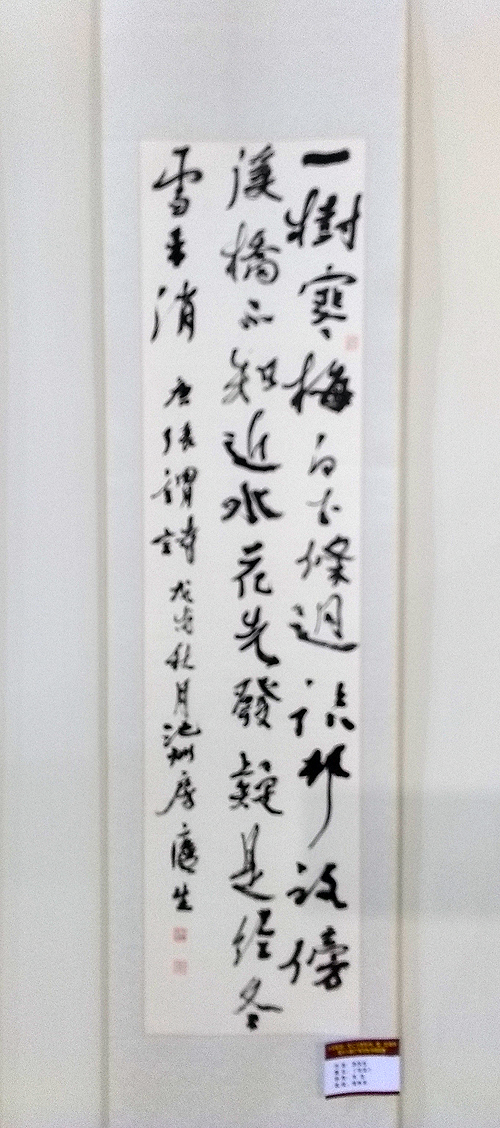 一樹寒梅白玉條迥臨村路傍
溪橋不知近水花先發疑是經冬
雪未消 唐張謂詩 秋月池州